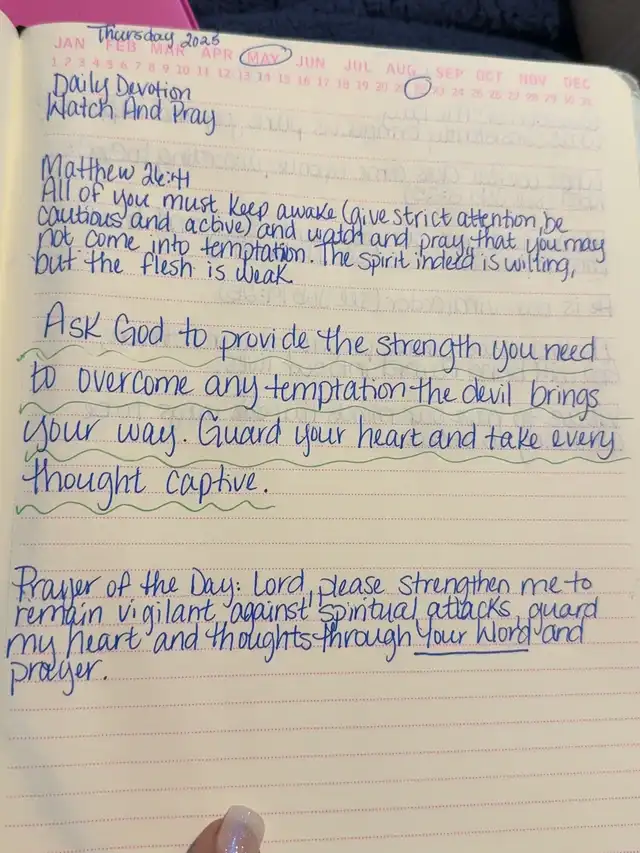 Thursday 2025
JAN FEB MAR APR MAY JUN JUL AUG SEP OCT NOV DEC
1 2 3 4 5 6 7 8 9 10 11 12 13 14 15 16 17 18 19 20 21 23 24 25 26 27 28 29 30 31
Daily Devotion
Watch And Pray
Matthew 26:41
All of you must keep awake (give strict attention, be
cautious and active) and watch and pray, that you may
not come into temptation. The spirit indeed is willing,
but the flesh is weak.
Ask God to provide the strength you need
to overcome any temptation the devil brings
your way. Guard your heart and take every
thought captive.
Prayer of the Day: Lord, please strengthen me to
remain vigilant against spiritual attacks, guard
my heart and thoughts through Your Word and
prayer.